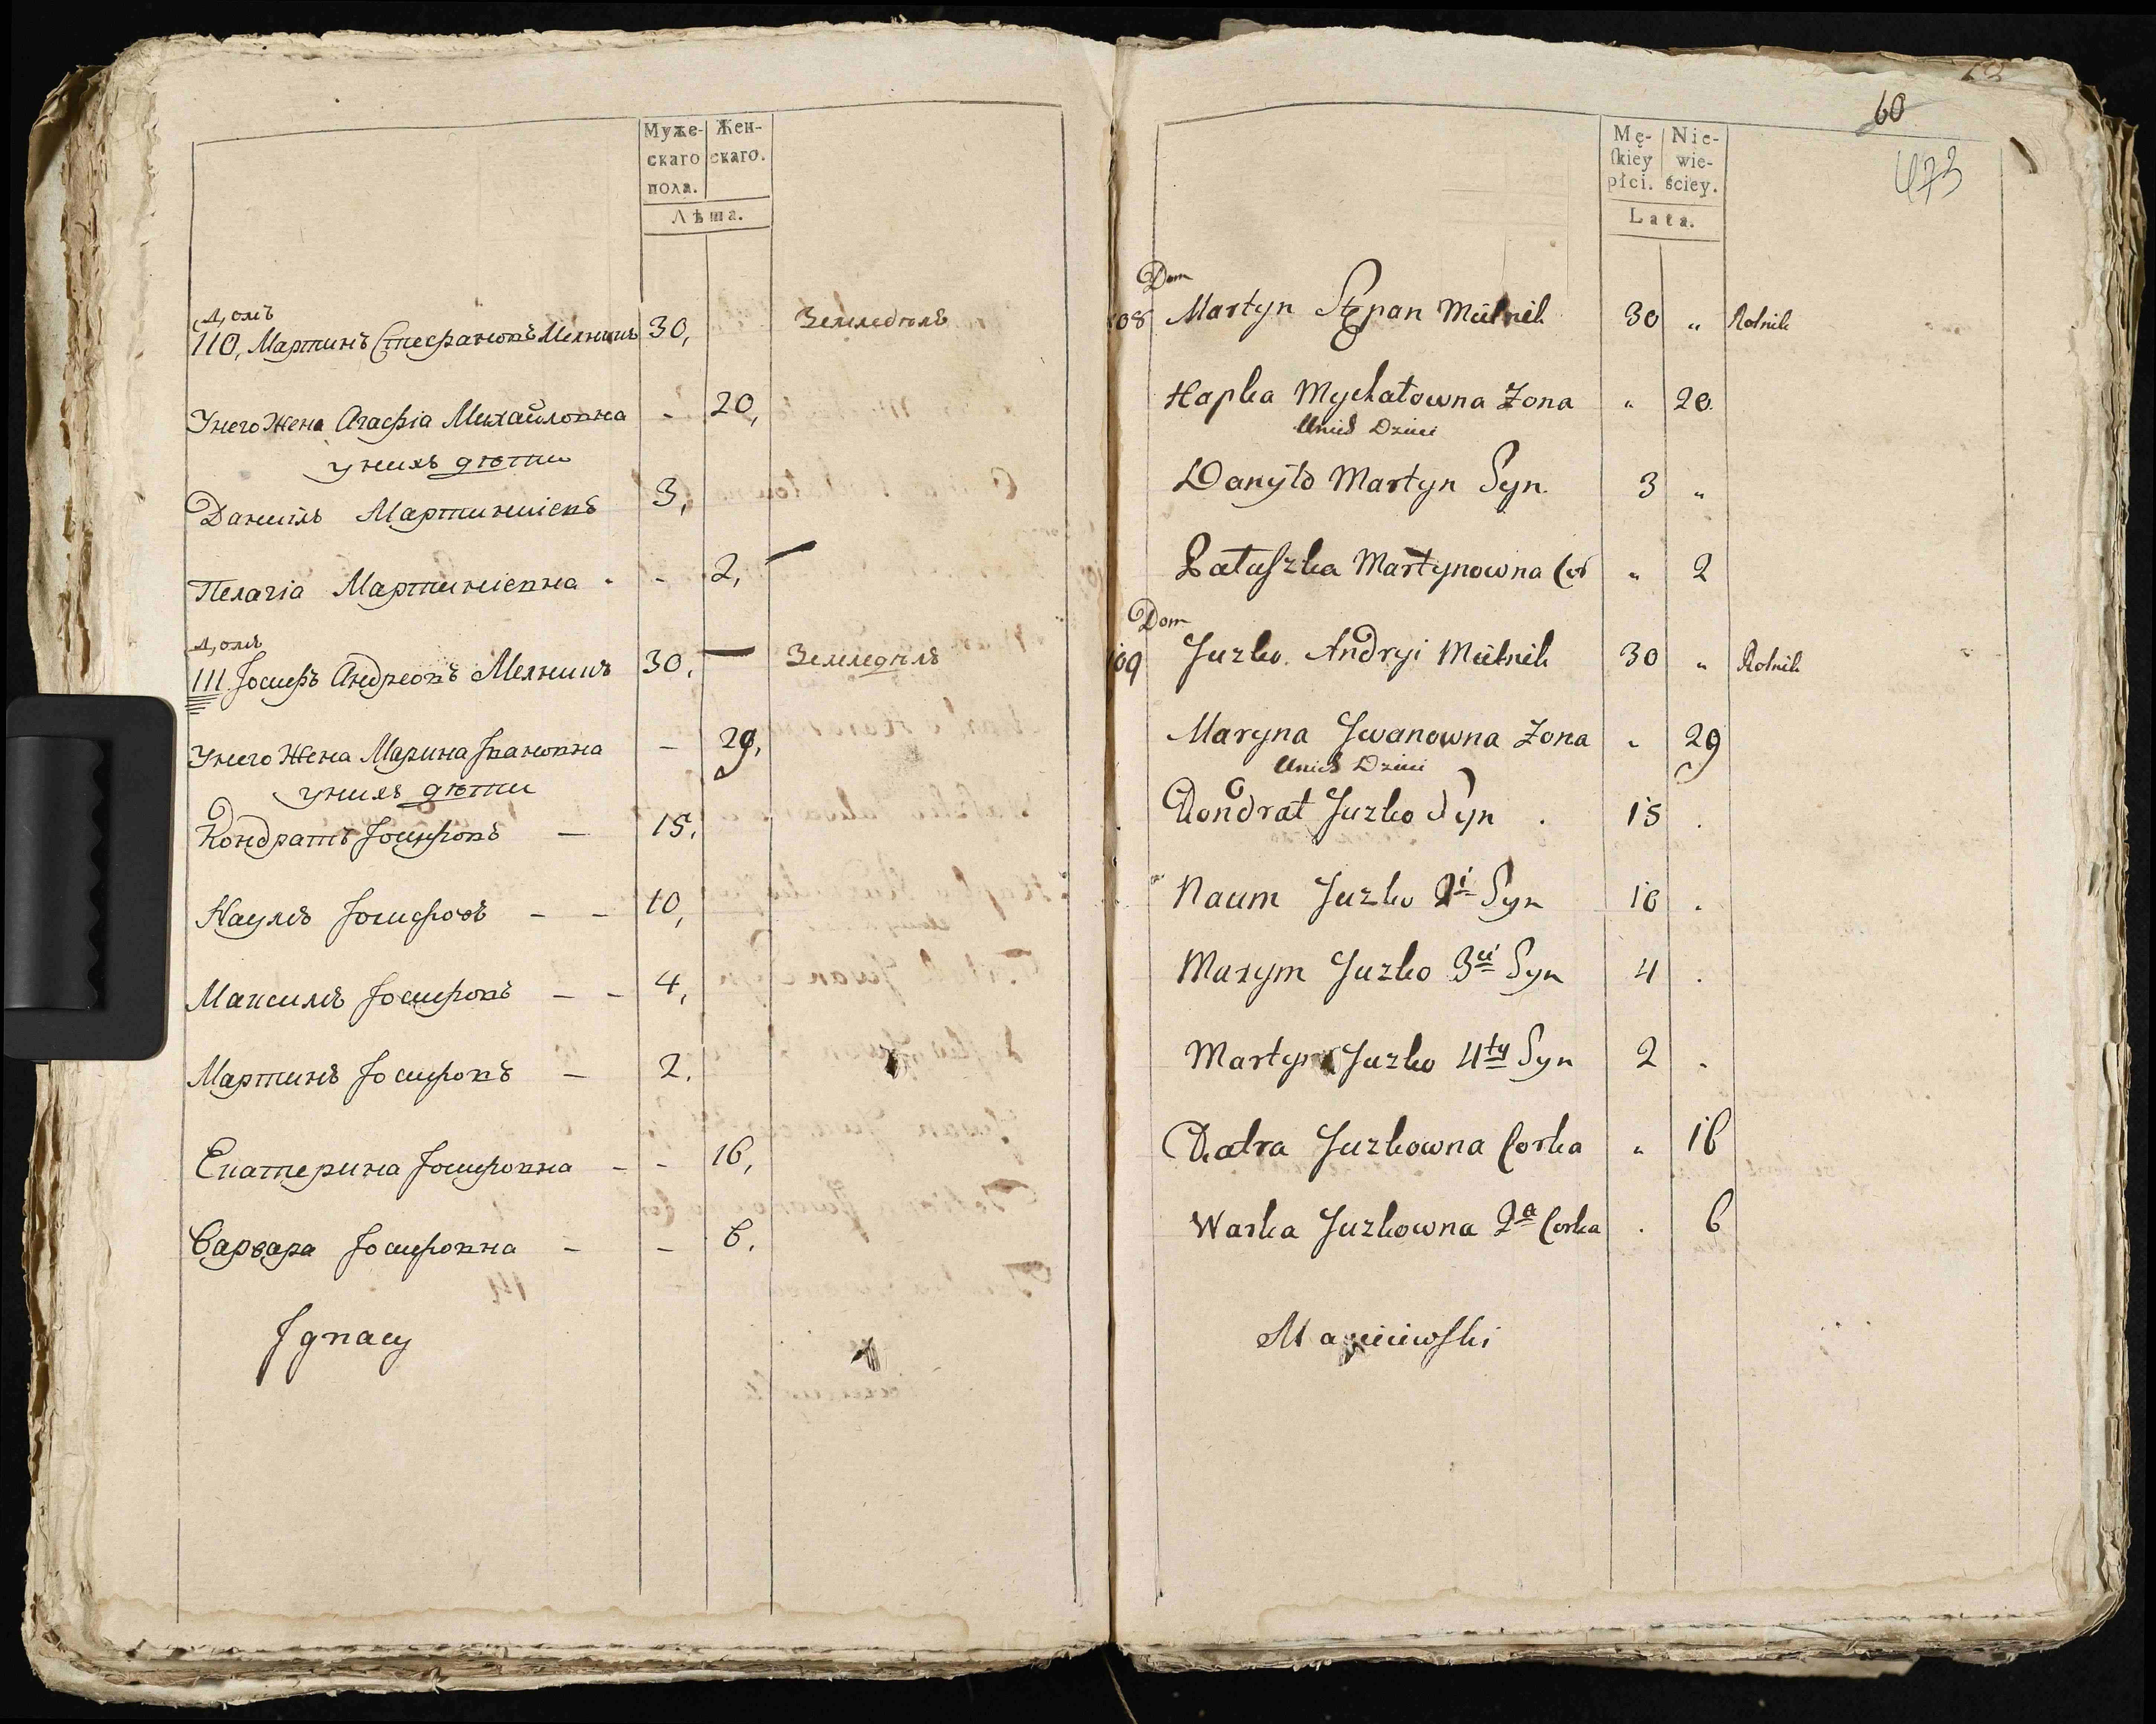 Муже- Жен-
скаго скаго.
пола.
Лѣта.
Домъ
110, Мартинъ Стефановъ Мелникъ 30, Земледѣлъ
Унего Жена Агафіа Михайловна - 20,
унихъ дѣти
Даниилъ Мартиніевъ 3,
Пелагіа Мартиніевна - - 2,
Домъ
111 Іосифъ Андреовъ Мелникъ 30. — Земледѣлъ
Унего Жена Марина Івановна — 29,
унихъ дѣти
Кондратъ Іосифовъ — 15.
Наумъ Іосифовъ - - 10,
Максимъ Іосифовъ - - 4,
Мартинъ Іосифовъ — 2.
Екатерина Іосифовна - - 16,
Варвара Іосифовна - - 6.
Jgnacy
60
473
Mę- Nie-
ſkiey wie-
płci. ściey.
Lata.
Dom
108 Martyn Stepan Mielnik 30 " Rolnik
Hapka Mychałowna Zona " 20.
Unich Dzieci
Danyło Martyn Syn. 3 "
Pałaſzka Martynowna Cor " 2
Dom
109 Juzko Andryi Mielnik 30 " Rolnik
Maryna Jwanowna Zona " 29
Unich Dzieci
Kondrat Juzko Syn . 15 .
Naum Juzko 2i Syn 10 .
Maxym Juzko 3ci Syn 4 .
Martyn Juzko 4ty Syn 2 .
Katra Juzkowna Corka " 16
Warka Juzkowna 2a Corka . 6